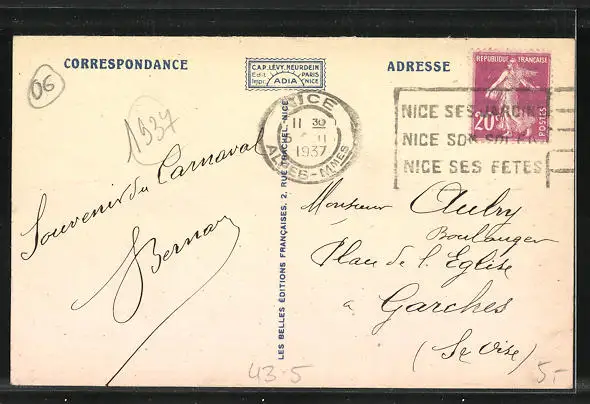 CORRESPONDANCE
C.A.P. LÉVY. NEURDEIN
Edit. PARIS
Impr. ADIA NICE
ADRESSE
REPUBLIQUE FRANÇAISE
20c
POSTES
06
1937
NICE
11 30
1937
ALPES-MMES
NICE SES JARDINS
NICE SON SOLEIL
NICE SES FETES
Souvenir du Carnaval
LES BELLES ÉDITIONS FRANÇAISES, 2, RUE TRACHEL, NICE
Monsieur Aubry
Boulanger
Place de l'Eglise
a Garches
43-5
5-